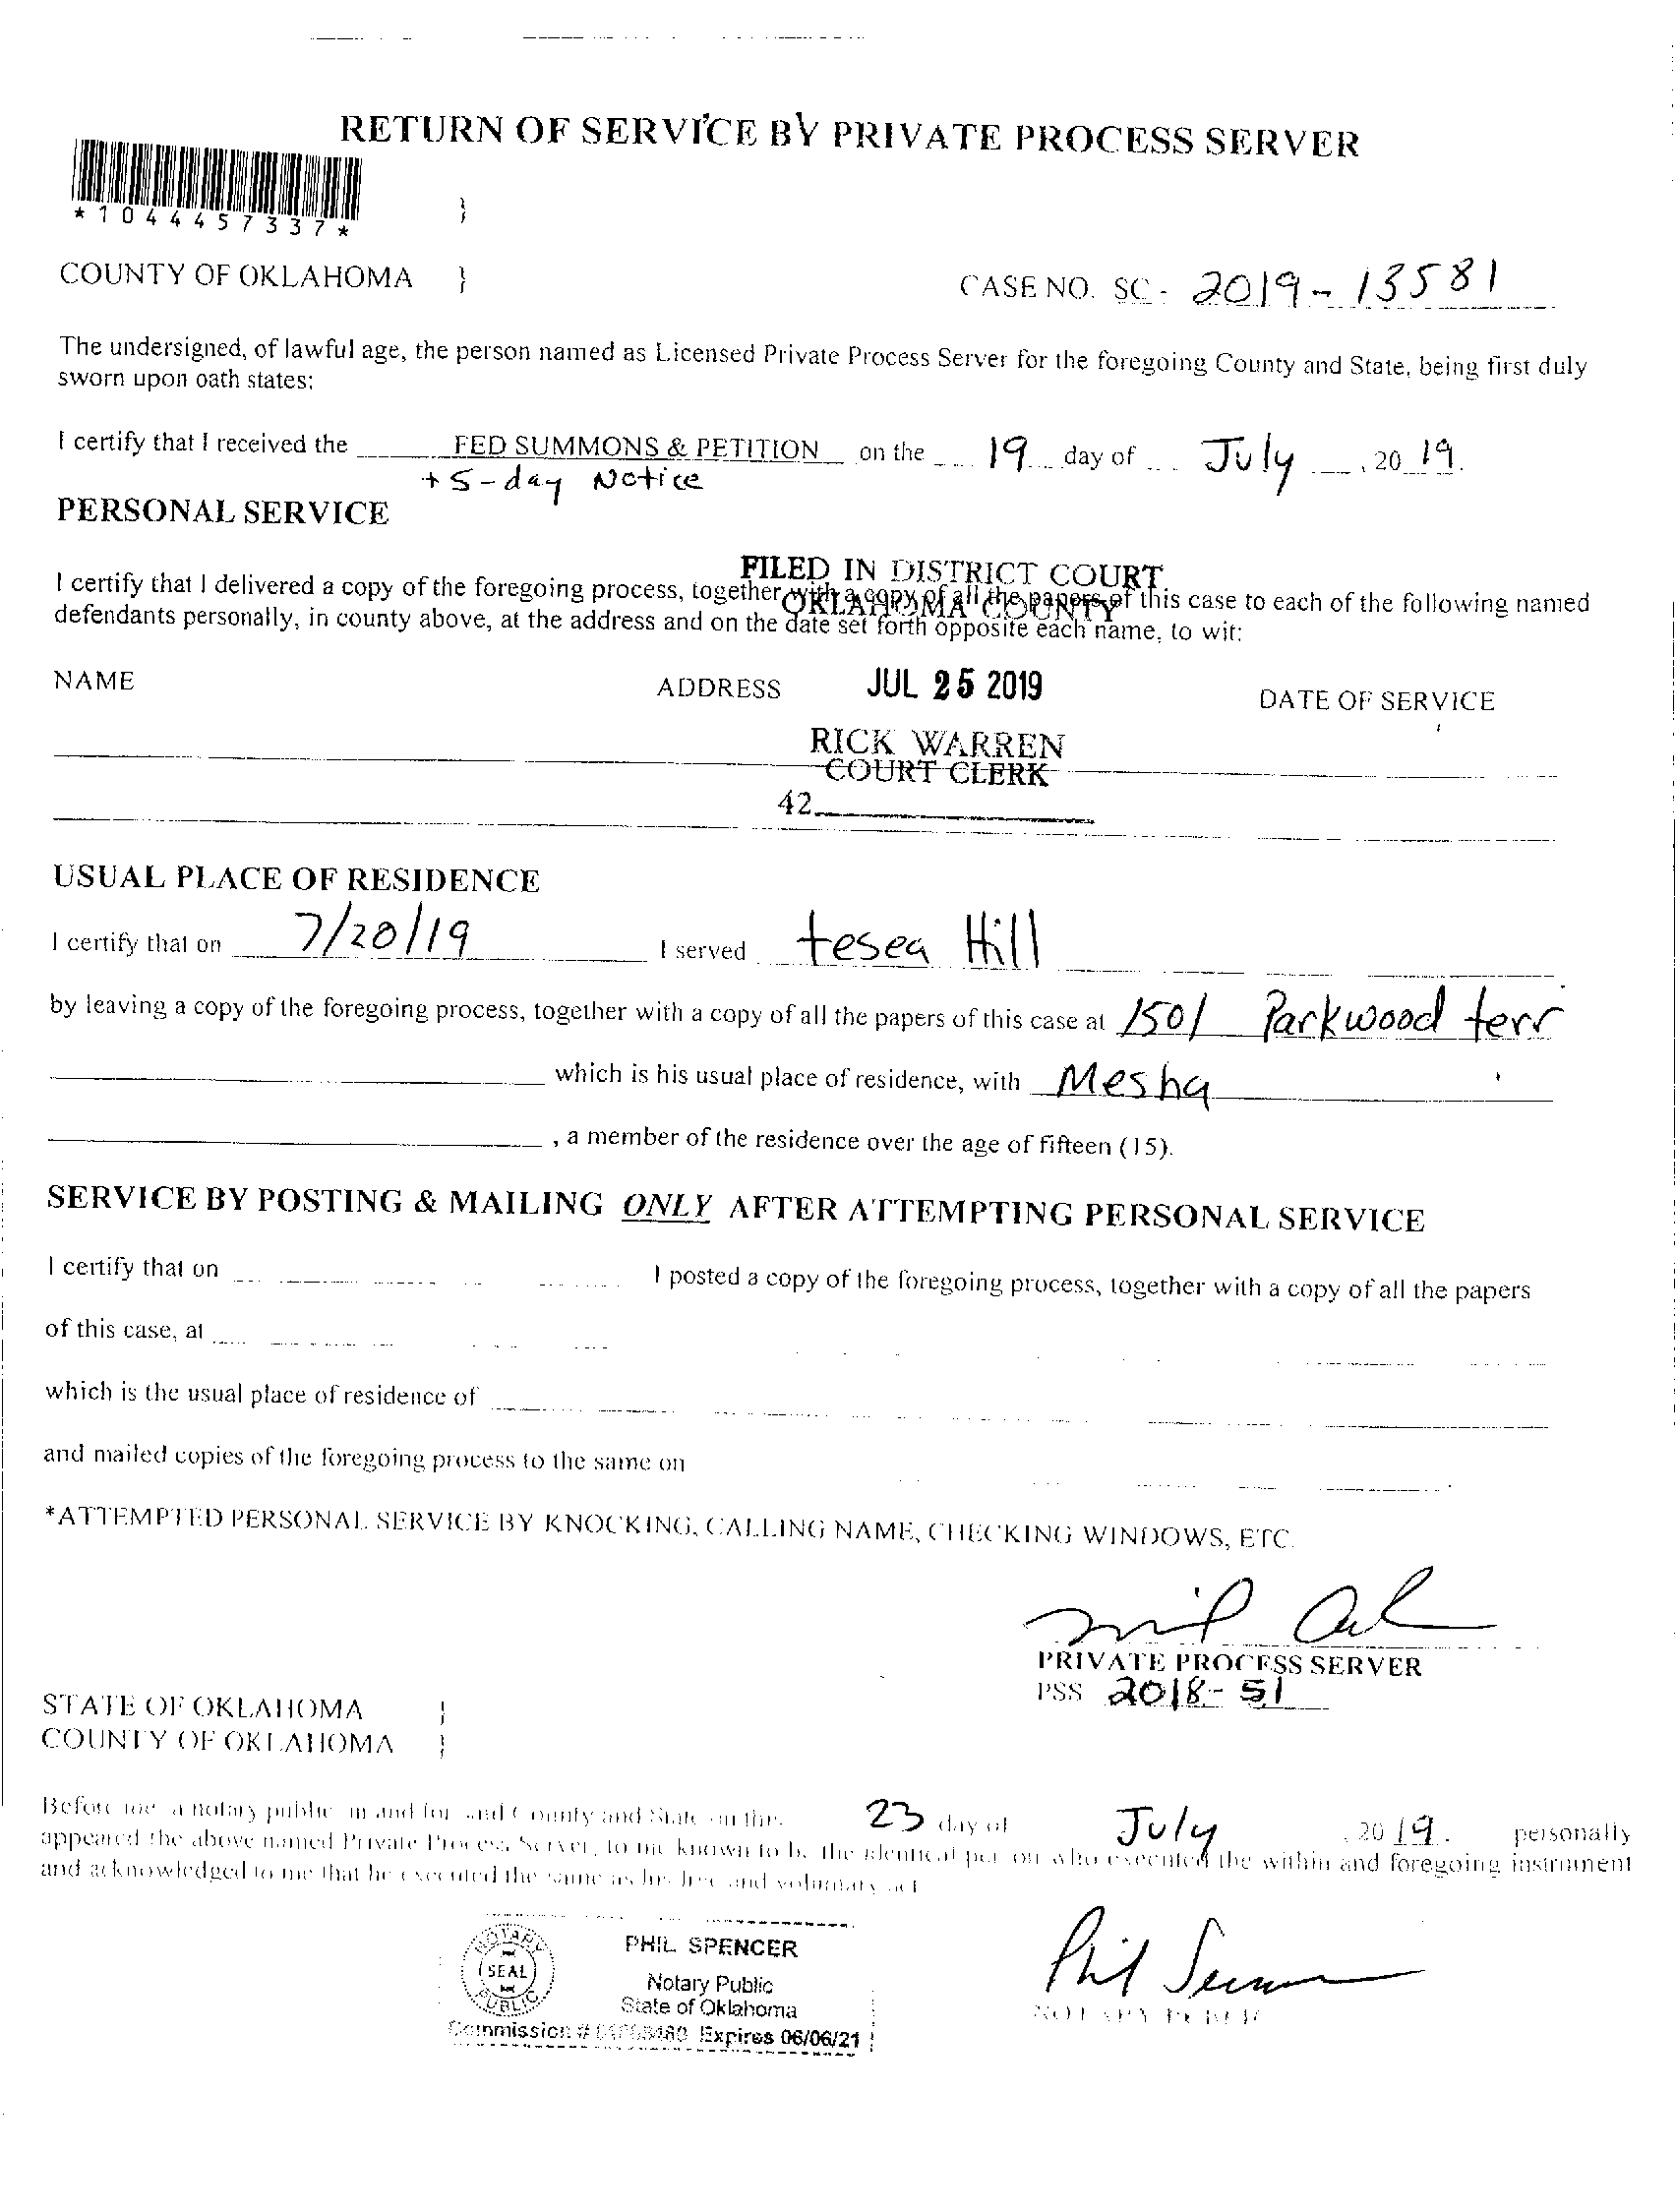 RETURN OF SERVICE BY PRIVATE PROCESS SERVER
*1044457337*
}
COUNTY OF OKLAHOMA }
CASE NO. SC - 2019-13581
The undersigned, of lawful age, the person named as Licensed Private Process Server for the foregoing County and State, being first duly
sworn upon oath states:
I certify that I received the FED SUMMONS & PETITION on the 19 day of July, 20 19.
+ 5-day Notice
PERSONAL SERVICE
FILED IN DISTRICT COURT
OKLAHOMA COUNTY
I certify that I delivered a copy of the foregoing process, together with a copy of all the papers of this case to each of the following named
defendants personally, in county above, at the address and on the date set forth opposite each name, to wit:
NAME ADDRESS JUL 25 2019 DATE OF SERVICE
RICK WARREN
COURT CLERK
42
USUAL PLACE OF RESIDENCE
I certify that on 7/20/19 I served tesea Hill
by leaving a copy of the foregoing process, together with a copy of all the papers of this case at 1501 Parkwood terr
which is his usual place of residence, with Mesha
, a member of the residence over the age of fifteen (15).
SERVICE BY POSTING & MAILING ONLY AFTER ATTEMPTING PERSONAL SERVICE
I certify that on I posted a copy of the foregoing process, together with a copy of all the papers
of this case, at
which is the usual place of residence of
and mailed copies of the foregoing process to the same on
*ATTEMPTED PERSONAL SERVICE BY KNOCKING, CALLING NAME, CHECKING WINDOWS, ETC.
PRIVATE PROCESS SERVER
PSS 2018-51
STATE OF OKLAHOMA }
COUNTY OF OKLAHOMA }
Before me a notary public in and for said County and State on this 23 day of July, 20 19. personally
appeared the above named Private Process Server, to me known to be the identical person who executed the within and foregoing instrument
and acknowledged to me that he executed the same as his free and voluntary act
NOTARY
SEAL
PUBLIC
PHIL SPENCER
Notary Public
State of Oklahoma
Commission # Expires 06/06/21
NOTARY PUBLIC